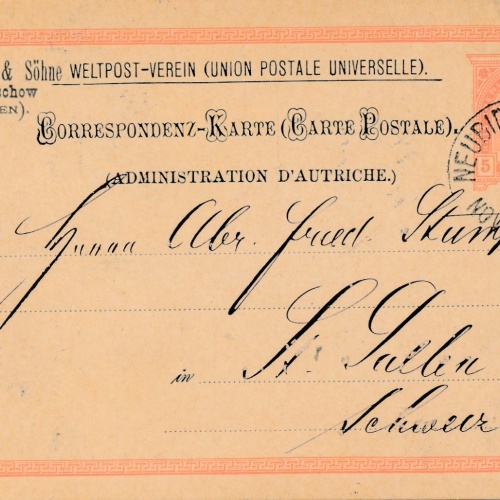 & Söhne
schow
EN).
WELTPOST-VEREIN (UNION POSTALE UNIVERSELLE).
CORRESPONDENZ-KARTE (CARTE POSTALE).
(ADMINISTRATION D'AUTRICHE.)
5
NEUBID
NOV
Herrn Abr. Fried. Stump
in St. Gallen
Schweiz